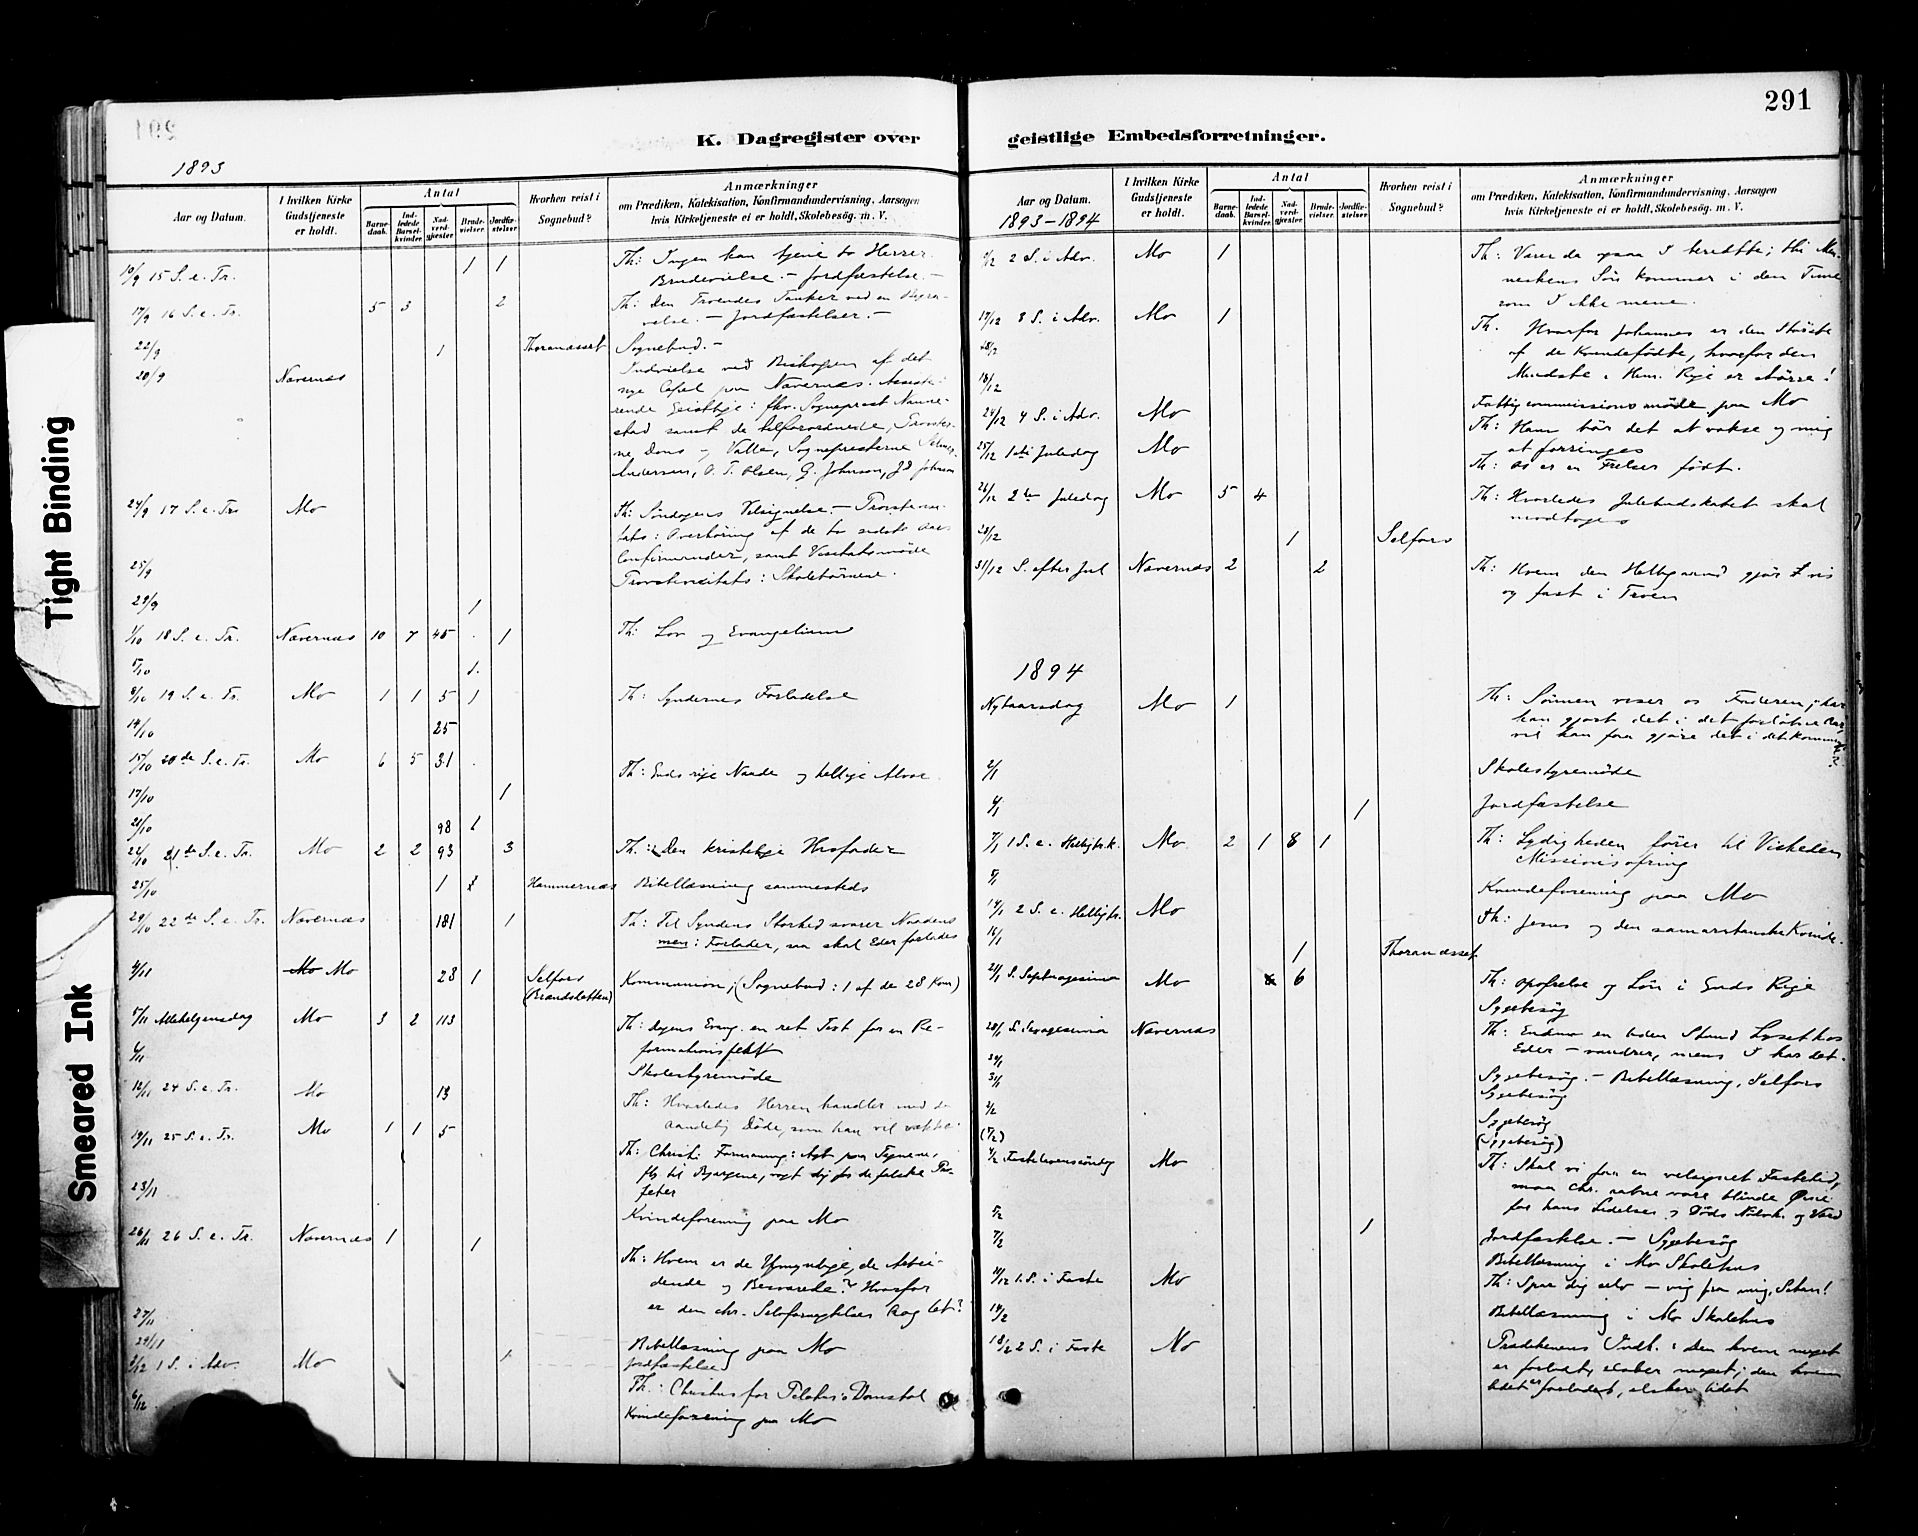 291
K. Dagregister over
geistlige Embedsforretninger.
1893
Aar og Datum.
I hvilken Kirke Gudstjeneste er holdt.
Antal
Barnedaab.
Indledede Barselkvinder
Nadverdgjester
Brudevielser
Jordfæstelser
Hvorhen reist i Sognebud?
Anmærkninger
om Prædiken, Katekisation, Konfirmandundervisning, Aarsagen
hvis Kirketjeneste ei er holdt, Skolebesøg. m. V.
10/9 15 S. e. Tr. 1 1 Th: Ingen kan tjene to Herrer.
Brudevielse. – Jordfæstelse. –
17/9 16 S. e. Tr. 5 3 2 Th: Den Troendes Tanker ved en Begra-
velse. – Jordfæstelser. –
22/9 1 Thoranæsset Sognebud. –
20/9 Nævernæs Indvielse ved Biskopen af det
nye Capel paa Nævernæs. Assiste-
rende Geistlige: Sogneprest Nanne-
stad samt de tilforordnede, Provster-
ne Dons og Valle, Sognepresterne
Andersen, O. T. Olsen, G. Johnson, J. D. Johnson
24/9 17 S. e. Tr. Mo Th: Søndagens Velsignelse. – Provstevisi-
tats: Overhøring af de to sidste Aars
Confirmander, samt Visitatsmøde
25/9 Provstevisitats: Skolebørnene.
29/9 1
1/10 18 S. e. Tr. Nævernæs 10 7 45 1 Th: Lov og Evangelium
5/10 1.
8/10 19 S. e. Tr. Mo 1 1 5 1 Th: Syndernes Forladelse
14/10 25
15/10 20de S. e. Tr. Mo 6 5 31 Th: Guds rige Naade og hellige Alvor.
17/10 1
21/10 98 1
22/10 21de S. e. Tr. Mo 2 2 93 3 Th.: Den kristelige Husfader
25/10 1 Hammernæs Bibellæsning sammesteds
29/10 22de S. e. Tr. Nævernæs 181 1 Th: Til Syndens Storhed svarer Naadens
men: Forlader, saa skal Eder forlades
4/11 Mo Mo 28 1 Selfors (Brændsletten) Kommunion; (Sognebud: 1 af de 28 Kom)
5/11 Allehelgensdag Mo 3 2 113 Th: Dagens Evang. en ret Text for en Re-
formationsfest
6/11 Skolestyremøde
12/11 24 S. e. Tr. Mo 13 Th: Hvorledes Herren handler med de
aandelig Døde, som han vil vække.
19/11 25 S. e. Tr. Mo 1 1 5 Th: Christi Formaning: Agt paa Tegnene,
fly til Bjergene, vogt dig for de falske Pro-
feter
23/11 Kvindeforening paa Mo
26/11 26 S. e. Tr. Nævernæs 1 1 Th: Hvem er de Umyndige, de Arbei-
dende og Besværede? Hvorfor
er den chr. Selvfornegtelses Aag let?
27/11 Bibellæsning paa Mo
29/11 Jordfæstelse
3/12 1 S. i Adv. Mo 1 Th.: Christus for Pilatus's Domstol
6/12 Kvindeforening paa Mo
Aar og Datum.
1893–1894
I hvilken Kirke Gudstjeneste er holdt.
Antal
Barnedaab.
Indledede Barselkvinder
Nadverdgjester
Brudevielser
Jordfæstelser
Hvorhen reist i Sognebud?
Anmærkninger
om Prædiken, Katekisation, Konfirmandundervisning, Aarsagen
hvis Kirketjeneste ei er holdt, Skolebesøg. m. V.
2 S. i Adv. Mo 1 Th: Værer da ogsaa I beredte; thi Me-
neskens Søn kommer i den Time
som I ikke mene.
17/12 3 S. i Adv. Mo 1 Th. Hvorfor Johannes er den Største
af de Kvindefødte, hvorfor den
Mindste i Him. Rige er større!
18/12 Fattigcommissionsmøde paa Mo
24/12 4 S. i Adv. Mo Th: Ham bør det at vokse og mig
at forringes
25/12 1ste Juledag Mo Th: Os er en Frelser født.
26/12 2den Juledag Mo 5 4 Th: Hvorledes Julebudskabet skal
modtages
28/12 1 Selfors
31/12 S. efter Jul Nævernæs 2 2 Th: Hvem den Helligaand gjør vis
og fast i Troen
1894
Nytaarsdag Mo 1 Th: Sønnen viser os Faderen; har
han gjort det i det forløbne Aar,
vil han faa gjøre det i det kommende?
2/1 Skolestyremøde
4/1 1 Jordfæstelse
7/1 1 S. e. Hellig3k. Mo 2 1 8 1 Th: Lydigheden fører til Visheden
Missionsofring
Kvindeforening paa Mo
14/1 2 S. e. Hellig3k. Mo Th: Jesus og den samaritanske Kvinde.
16/1 1 Thoranæsset
21/1 S. Septuagesima Mo 6 Th: Opofrelse og Løn i Guds Rige
Sygebesøg
28/1 S. Sexagesima Nævernæs Th: Endnu en liden Stund Lyset hos
Eder – vandrer, mens I har det.
30/1 Sygebesøg. – Bibellæsning, Selfors
31/1 Sygebesøg
2/2 Sygebesøg
(Sygebesøg)
4/2 Fastelavnssøndag Mo Th: Skal vi faa en velsignet Fastetid,
maa Chr. aabne vore blinde Øine
for hans Lidelses og Døds Nødv. og Værd
5/2 1 Jordfæstelse. – Sygebesøg
7/2 Bibellæsning i Mo Skolehus
1. S. i Faste Mo Th: Spar dig selv – vig fra mig, Satan!
14/2 Bibellæsning i Mo Skolehus
18/2 2 S. i Faste Mo Prædikenens Indh.: den hvem meget
er forladt, elsker meget; den hvem
lidet er forladt, elsker lidet
Tight Binding
Smeared Ink